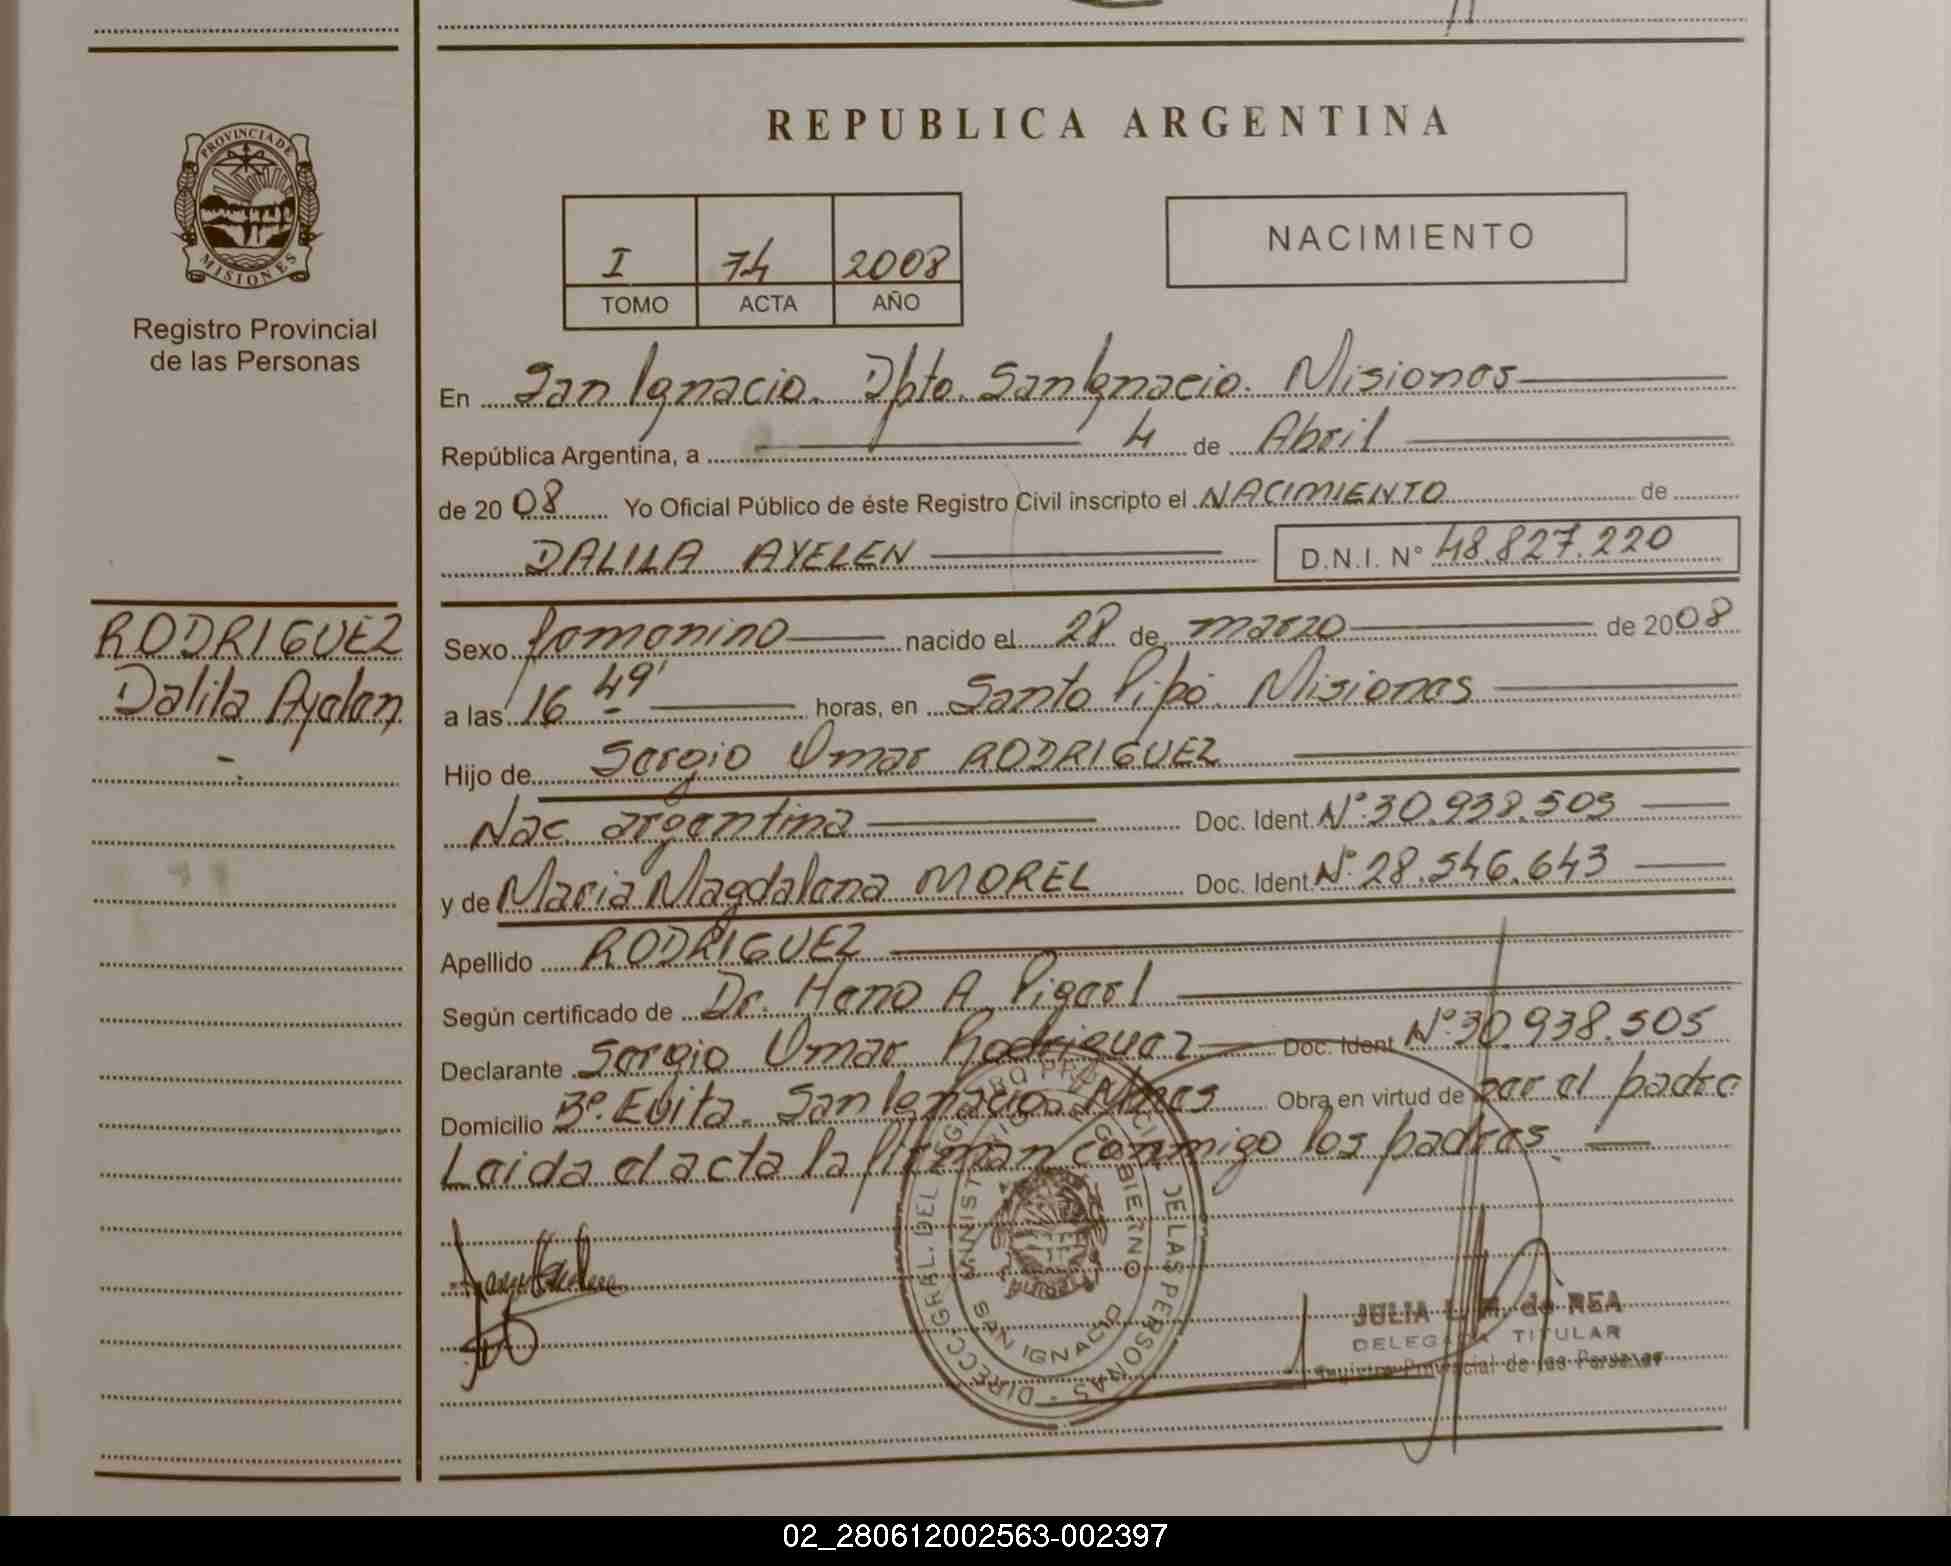 PROVINCIA DE
MISIONES
Registro Provincial
de las Personas
RODRIGUEZ
Dalila Ayelen
REPUBLICA ARGENTINA
I 74 2008
TOMO ACTA AÑO
NACIMIENTO
En San Ignacio. Dpto. San Ignacio. Misiones
República Argentina, a 4 de Abril
de 20 08 Yo Oficial Público de éste Registro Civil inscripto el NACIMIENTO de
DALILA AYELEN D.N.I. N° 48.827.220
Sexo femenino nacido el 28 de marzo de 2008
a las 16 49' horas, en Santo Pipó. Misiones
Hijo de Sergio Omar RODRIGUEZ
Nac. argentina Doc. Ident. N°:30.938.505
y de Maria Magdalena MOREL Doc. Ident N°:28.546.643
Apellido RODRIGUEZ
Según certificado de Dr. Hano A.
Declarante Sergio Omar Rodriguez Doc. Ident N°:30.938.505
Domicilio B°. Evita. San Ignacio. Mnes Obra en virtud de ser el padre
Leida el acta la firman conmigo los padres.
DIRECC. GRAL. DEL REGISTRO PROVINCIAL DE LAS PERSONAS
MINISTERIO DE GOBIERNO
SAN IGNACIO
JULIA L. de REA
DELEGADA TITULAR
Registro Provincial de las Personas
02_280612002563-002397